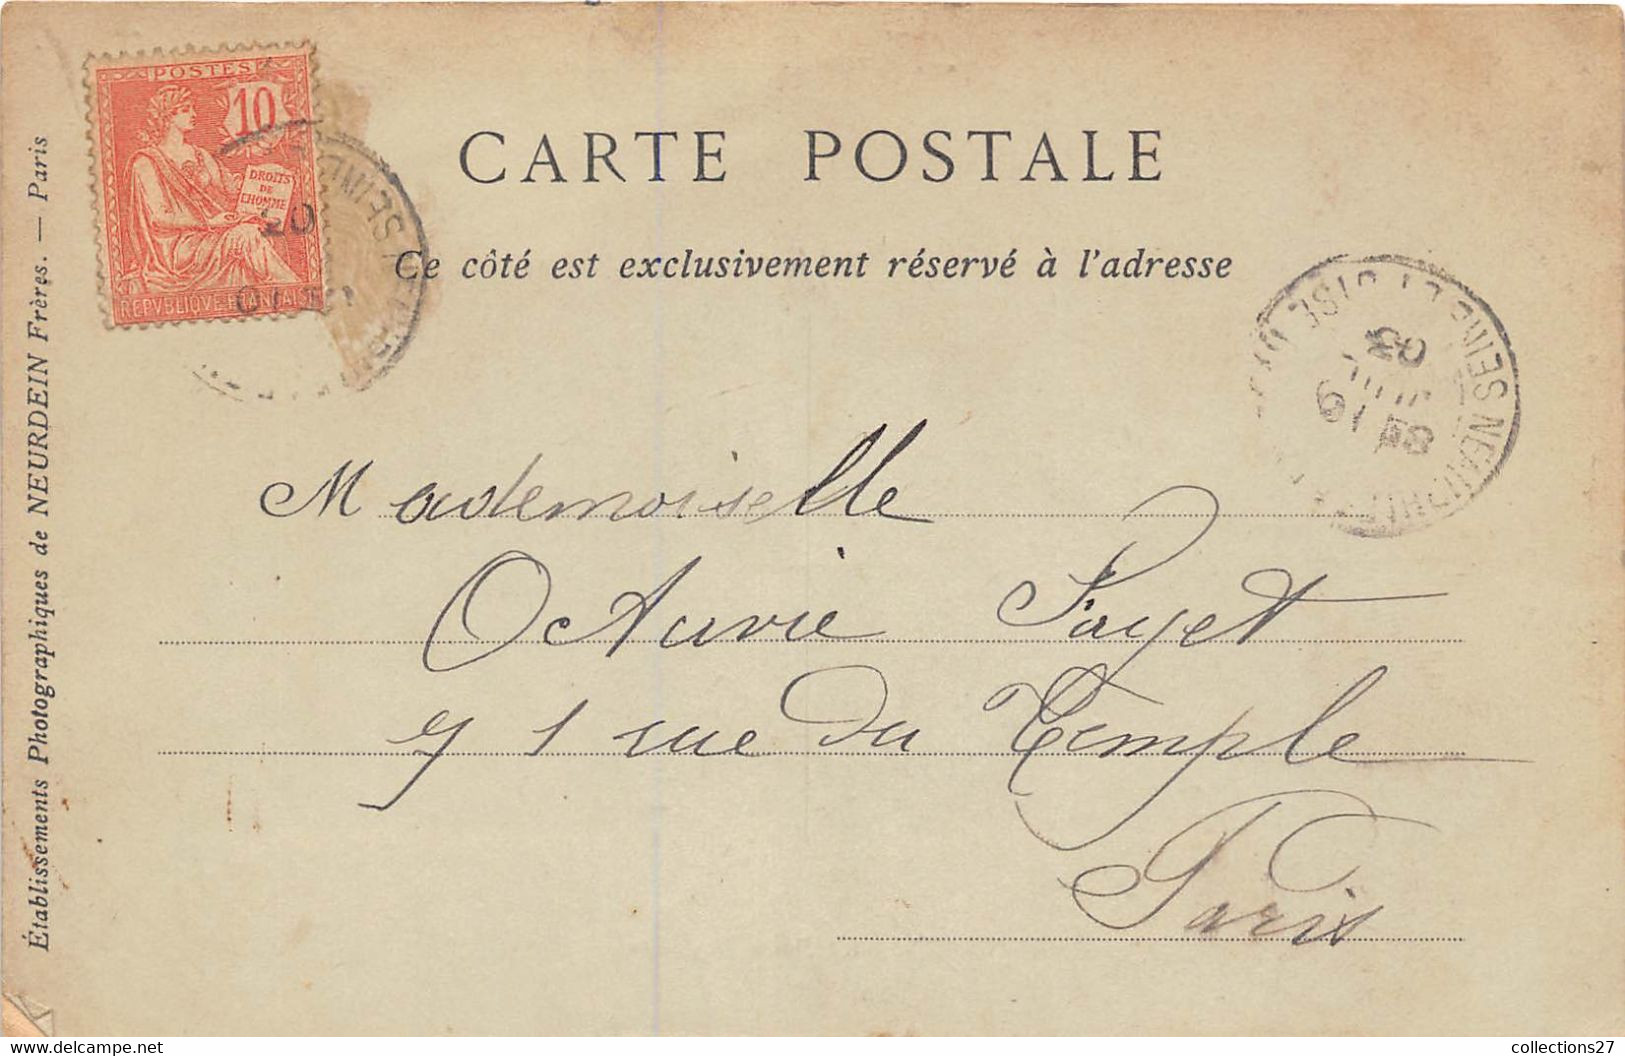 POSTES
10
DROITS
DE
L'HOMME
REPVBLIQVE FRANÇAISE
CARTE POSTALE
Ce côté est exclusivement réservé à l'adresse
SEINE ET OISE
03
Mademoiselle
Octavie Payet
71 rue du Temple
Paris
Établissements Photographiques de NEURDEIN Frères. — Paris
collections27